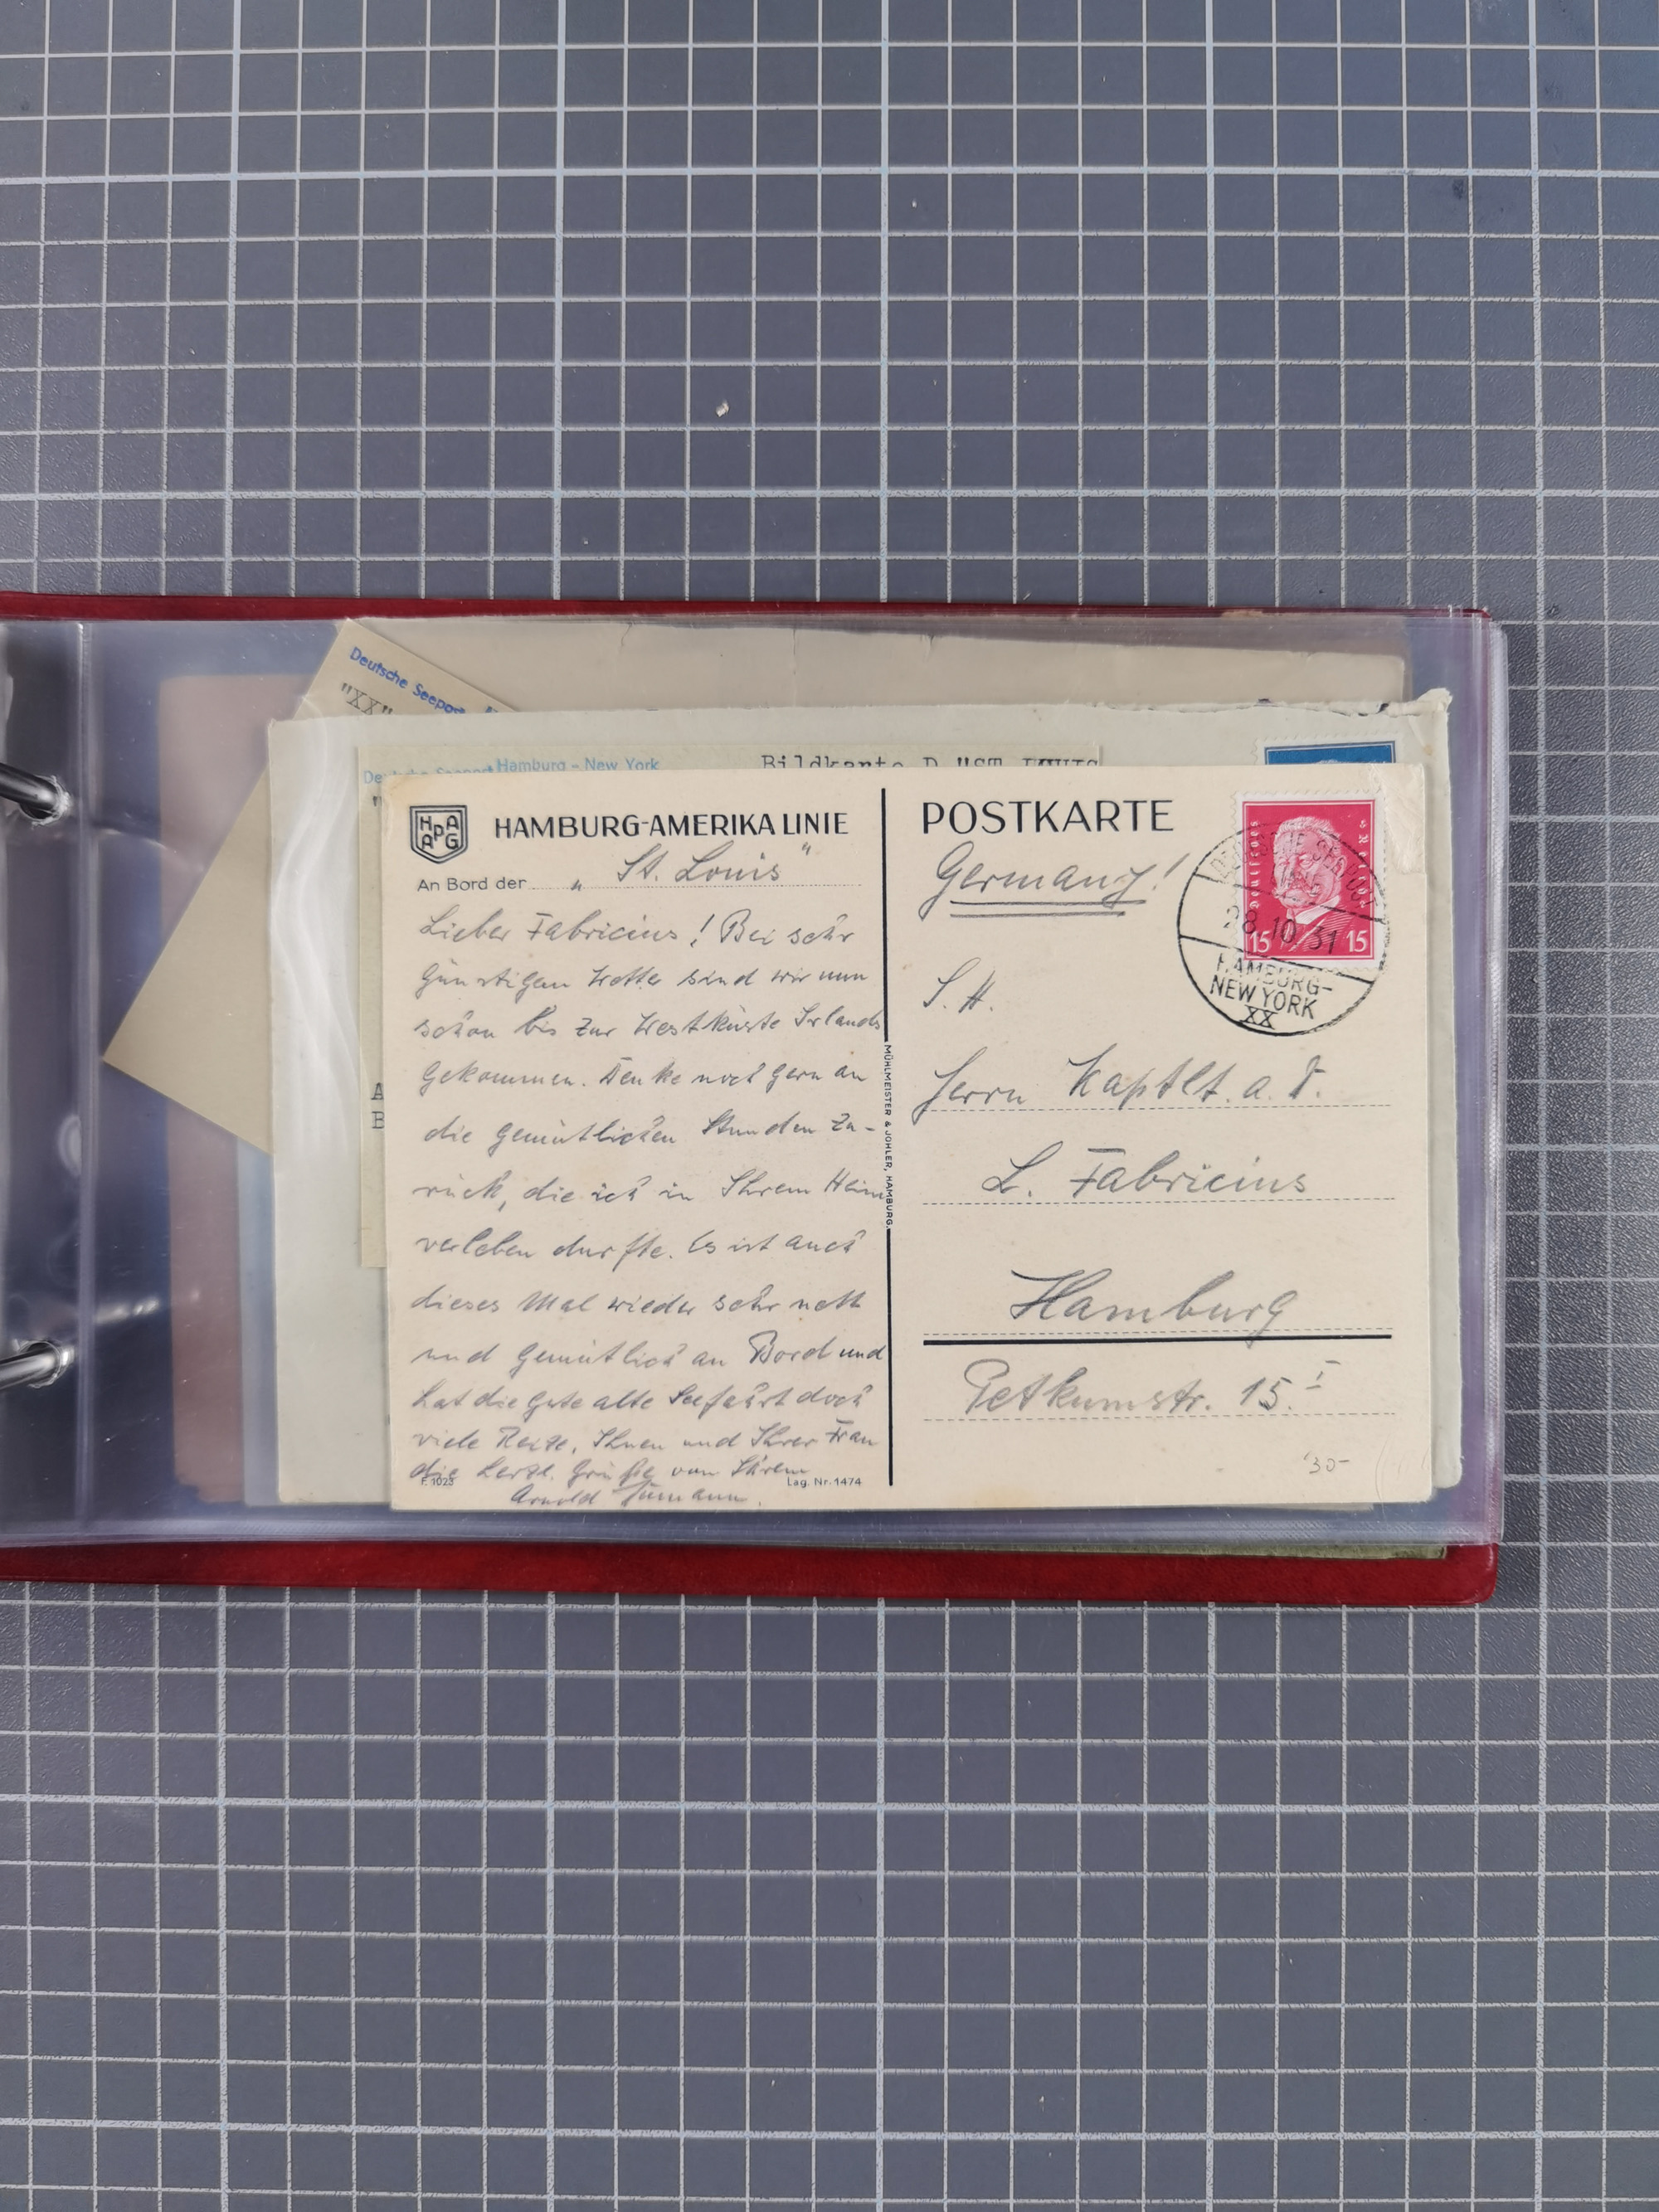 Deutsche Seepost
"XX"
Deutsche Seepost Hamburg - New York
Bildkarte D."ST. LOUIS
A
B
HAPAG
HAMBURG-AMERIKA LINIE
An Bord der „St. Louis"
Lieber Fabricius! Bei sehr
günstigem Wetter sind wir nun
schon bis zur Westküste Irlands
gekommen. Denke noch gern an
die gemütlichen Stunden zu-
rück, die ich in Ihrem Heim
verleben durfte. Es ist auch
dieses Mal wieder sehr nett
und gemütlich an Bord und
hat die gute alte Seefahrt doch
viele Reize. Ihnen und Ihrer Frau
die herzl. Grüße von Ihrem
Arnold
F. 1023
Lag. Nr. 1474
MÜHLMEISTER & JOHLER, HAMBURG.
POSTKARTE
Germany!
Deutsches Reich
15 15
DEUTSCHE SEEPOST
LINIE
28.10.31
HAMBURG-
NEW YORK
XX
S. H.
Herrn Kaptlt. a. D.
L. Fabricius
Hamburg
Petkumstr. 15.I
30-